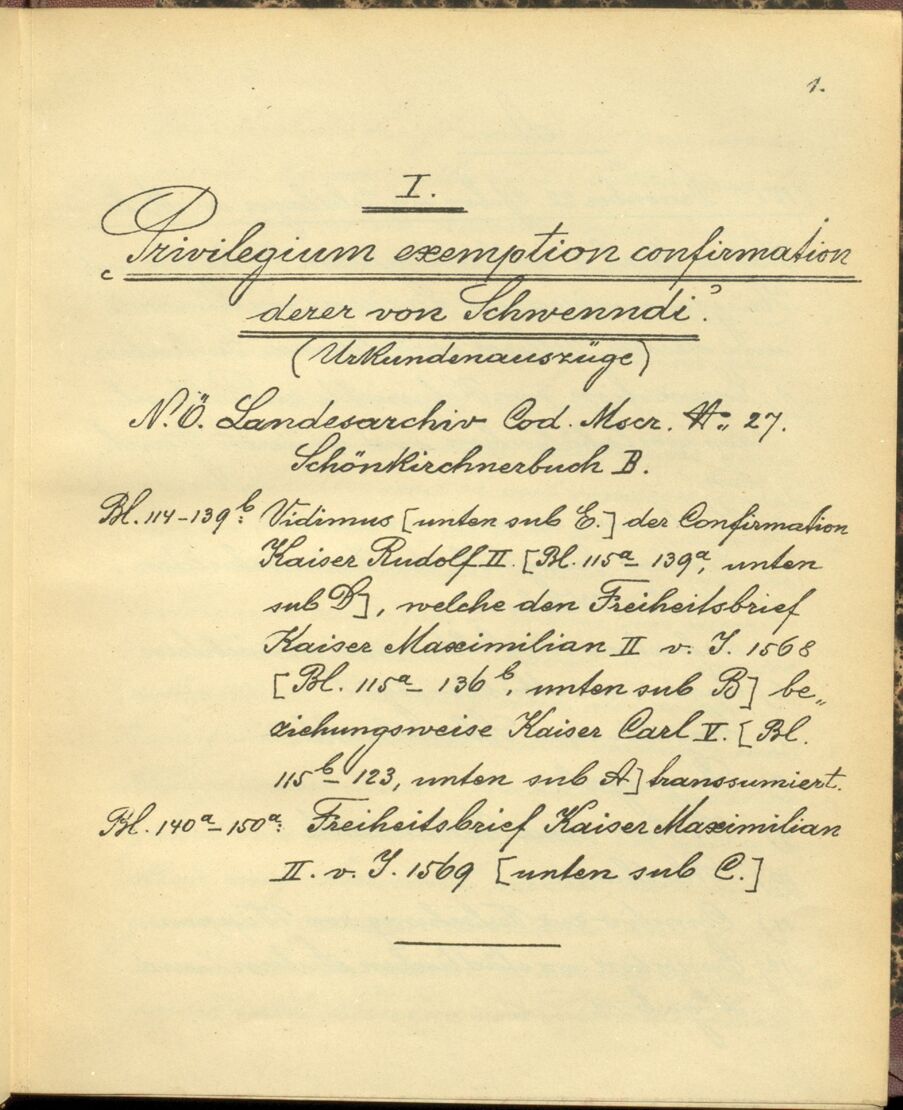 1.
I.
"Privilegium exemption confirmation
derer von Schwenndi".
(Urkundenauszüge)
N.Ö. Landesarchiv Cod. Mscr. No. 27.
Schönkirchnerbuch B.
Bl. 114-139b: Vidimus [unten sub E.] der Confirmation
Kaiser Rudolf II. [Bl. 115a- 139a, unten
sub D], welche den Freiheitsbrief
Kaiser Maximilian II v. J. 1568
[Bl. 115a- 136b, unten sub B] be„
ziehungsweise Kaiser Carl V. [Bl.
115b- 123, unten sub A] transsumiert.
Bl. 140a- 150a: Freiheitsbrief Kaiser Maximilian
II. v. J. 1569 [unten sub C.]